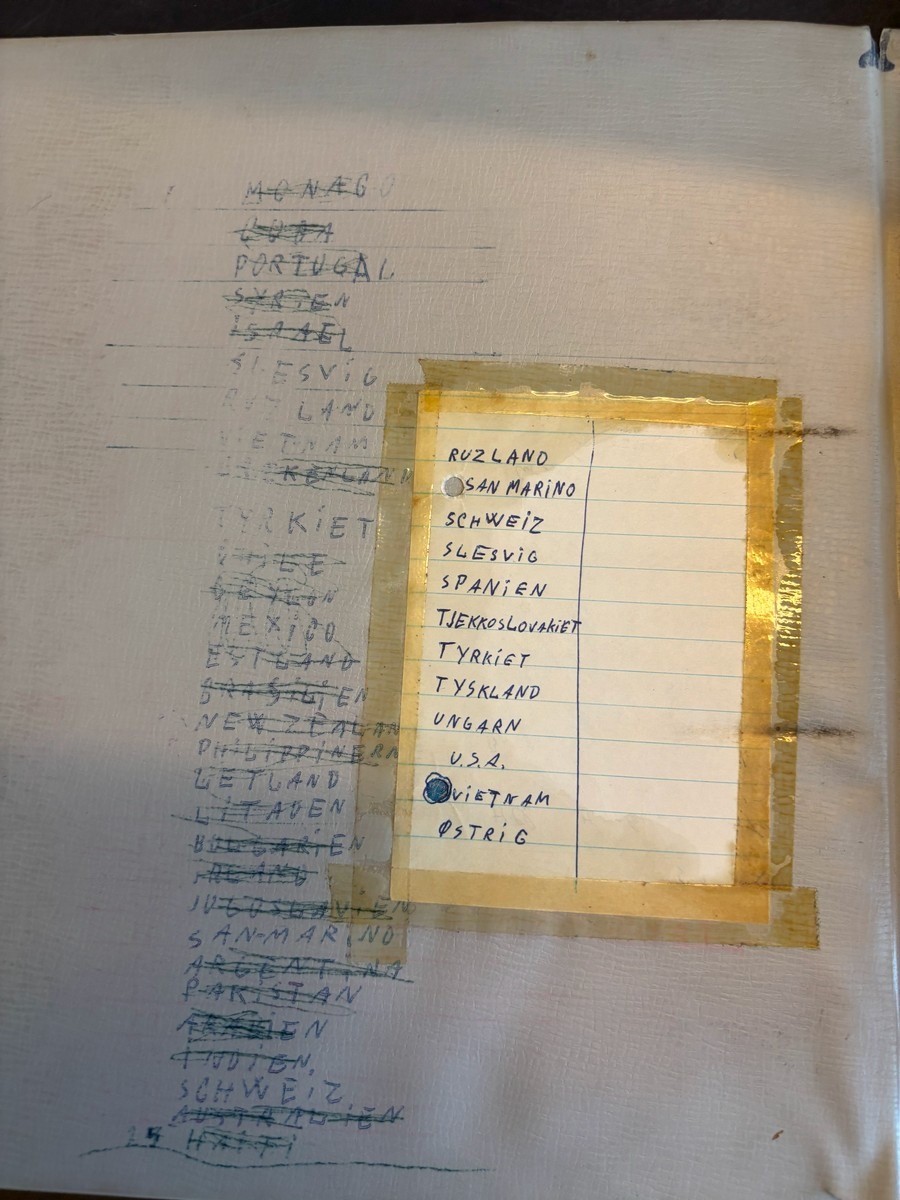 MONACO
CUBA
PORTUGAL
SYRIEN
ISRAEL
SLESVIG
RUZLAND
VIETNAM
TYRKIET
CEYLON
MEXICO
ESTLAND
BRASILIEN
NEW ZEALAN
PHILIPPINERN
LETLAND
LITAUEN
BULGARIEN
IRLAND
JUGOSLAVIEN
SAN-MARINO
ARGENTINA
PAKISTAN
ARABIEN
INDIEN.
SCHWEIZ
AUSTRALIEN
HAITI
RUZLAND
SAN MARINO
SCHWEIZ
SLESVIG
SPANIEN
TJEKKOSLOVAKIET
TYRKIET
TYSKLAND
UNGARN
U.S.A.
VIETNAM
ØSTRIG